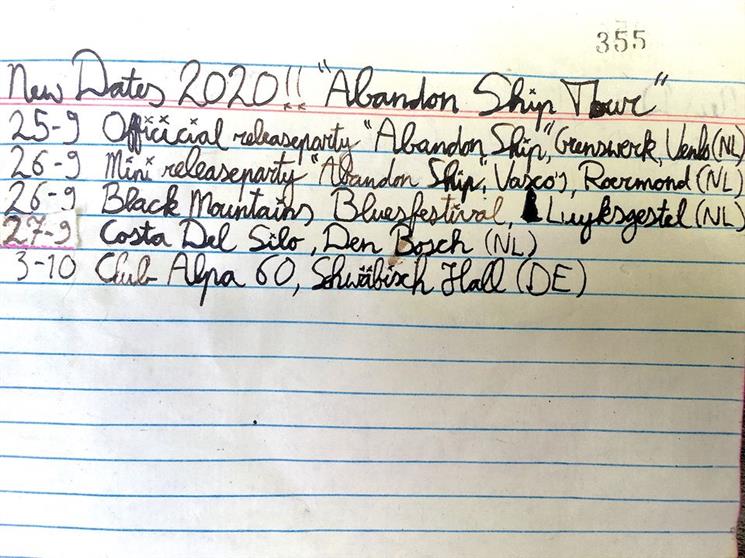 355
New Dates 2020!! "Abandon Ship Tour"
25-9 Officicial releaseparty "Abandon Ship", Grenswerk, Venlo (NL)
26-9 Mini releaseparty "Abandon Ship", Vasco's, Roermond (NL)
26-9 Black Mountains Bluesfestival, Luyksgestel (NL)
27-9 Costa Del Silo, Den Bosch (NL)
3-10 Club Alpa 60, Schwäbisch Hall (DE)